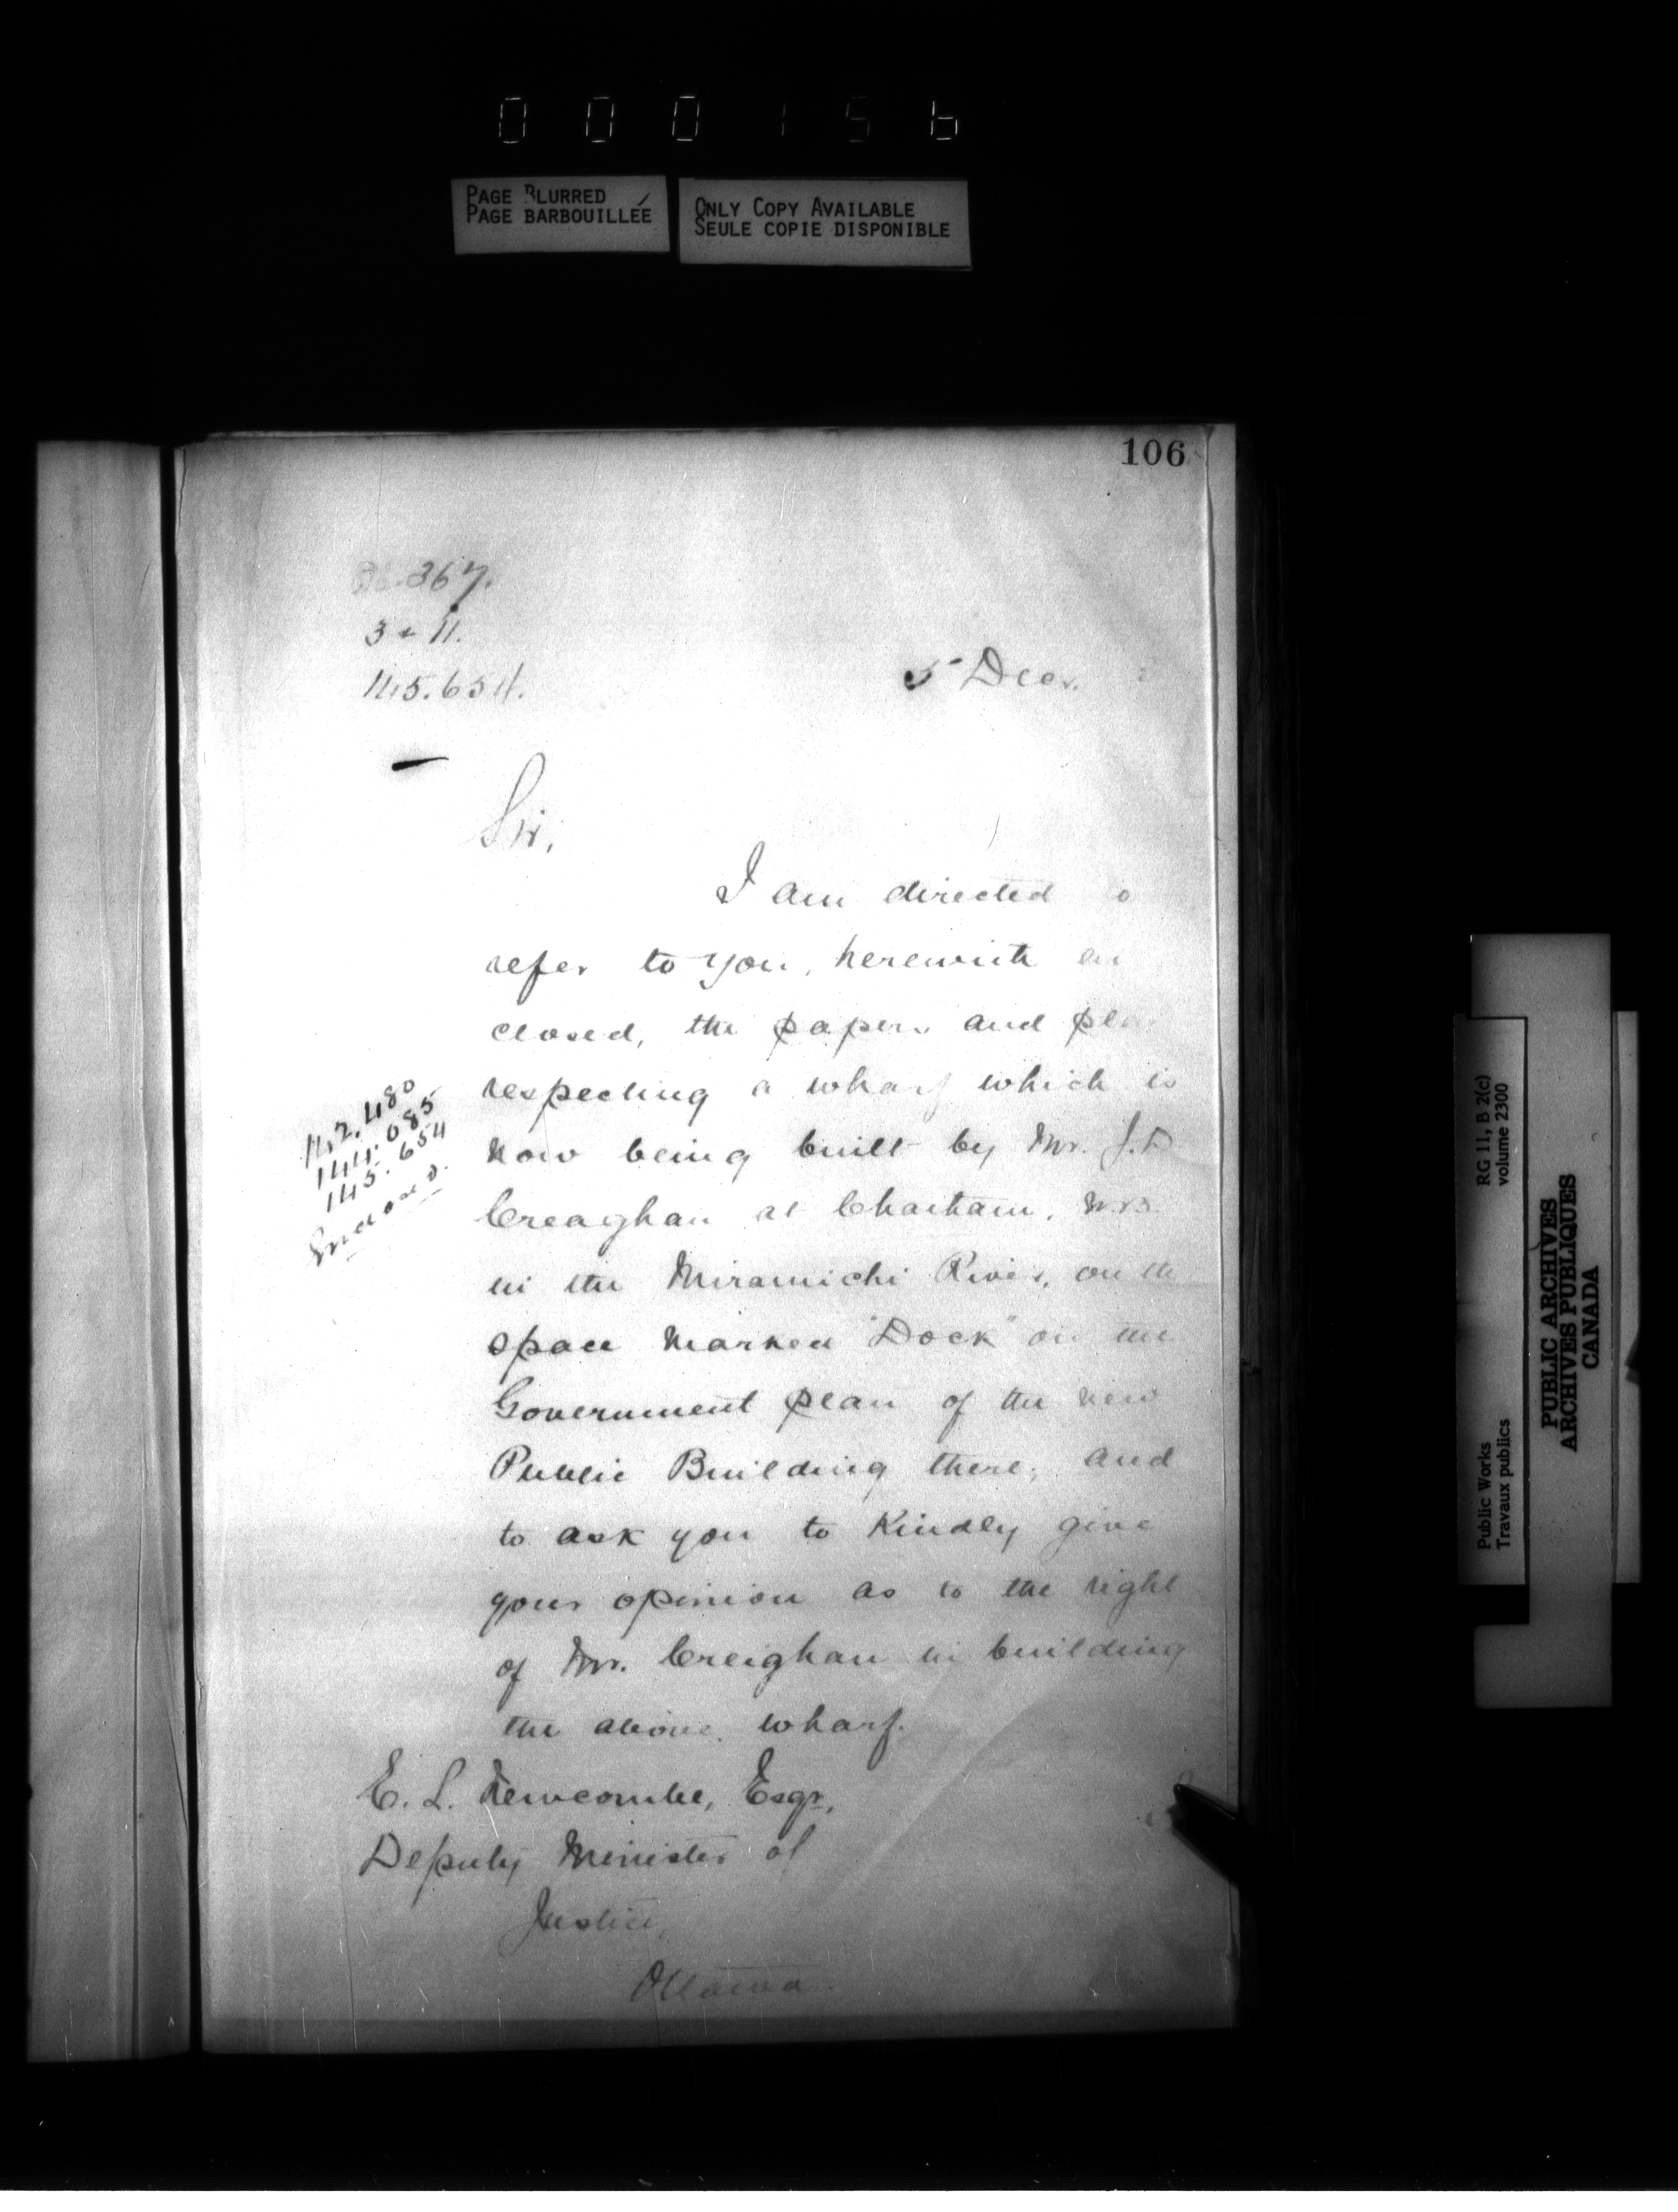 000156
PAGE BLURRED
PAGE BARBOUILLÉE
ONLY COPY AVAILABLE
SEULE COPIE DISPONIBLE
106
367.
3 + 11.
145.654.
5 Decr.
Sir,
I am directed to
refer to you, herewith en
closed, the papers and plan
respecting a wharf which is
now being built by Mr. J.D
Creaghan at Chatham, N.B.
in the Miramichi River, on the
space marked "Dock" on the
Government plan of the new
Public Building there; and
to ask you to kindly give
your opinion as to the right
of Mr. Creighan in building
the above wharf.
142.480
144.085
145.654
Enclosed.
E. L. Newcombe, Esqr.,
Deputy Minister of
Justice,
Ottawa
Public Works
Travaux publics
RG 11, B 2(c)
volume 2300
PUBLIC ARCHIVES
ARCHIVES PUBLIQUES
CANADA